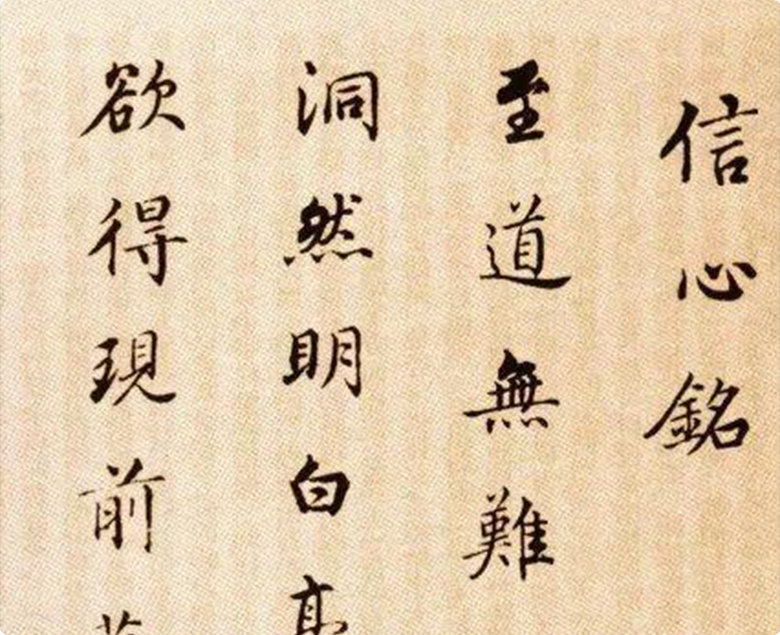 信心銘
至道無難
洞然明白
欲得現前